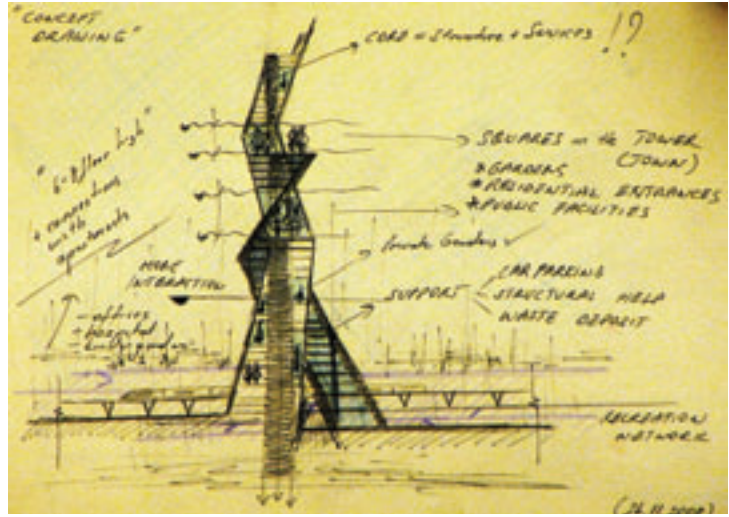 "CONCEPT
DRAWING"
CORE = Structure + Services !?
SQUARES in the TOWER
(TOWN)
* GARDENS
* RESIDENTIAL ENTRANCES
* PUBLIC FACILITIES
"6-8 floor high"
+ connections
with
apartments
Private Gardens
MORE
INTERACTION
CAR PARKING
SUPPORT
STRUCTURAL HELP
WASTE DEPOSIT
- offices
+ hospital
RECREATION
NETWORK